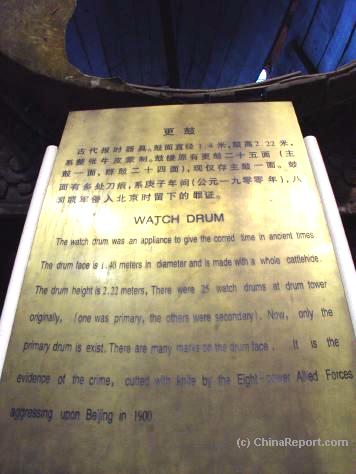 更 鼓
古代报时器具。鼓面直径1.4米,鼓高2.22米,
系整张牛皮蒙制。鼓楼原有更鼓二十五面(主
鼓一面,群鼓二十四面),现仅存主鼓一面。鼓
面有多处刀痕,系庚子年间(公元一九零零年),八
国联军侵入北京时留下的罪证。
WATCH DRUM
The watch drum was an appliance to give the corred time in ancient times
The drum face is 1.40 meters in diameter and is made with a whole cattlehide.
The drum height is 2.22 meters, There were 25 watch drums at drum tower
originally, (one was primary, the others were secondary). Now, only the
primary drum is exist. There are many marks on the drum face. It is the
evidence of the crime, cutted with knife by the Eight-power Allied Forces
aggressing upon Beijing in 1900
(c) ChinaReport.com